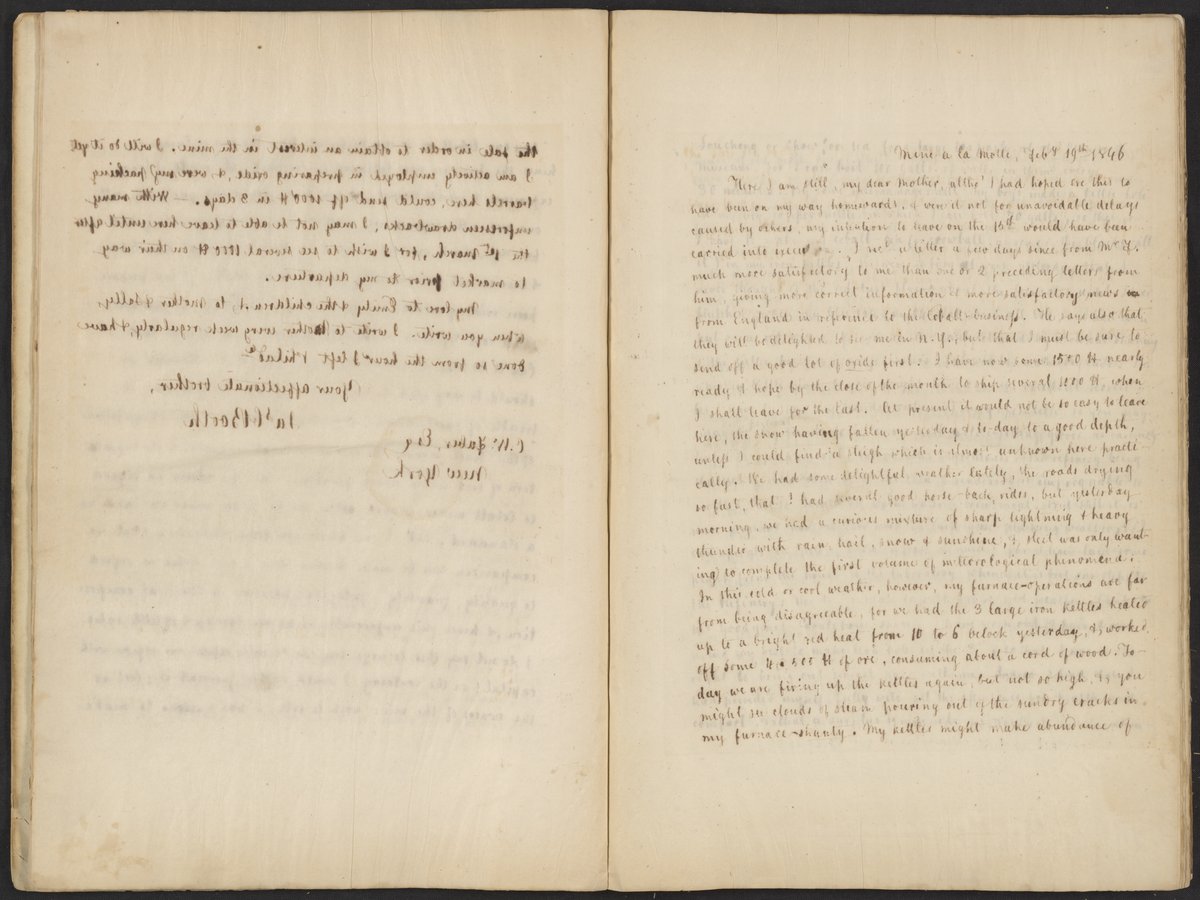 the sale in order to obtain an interest in the mine. I will do it yet
I am actively employed in preparing oxide, &, were my packing
barrels here, could send off 1000 ℔ in 3 days. — With many
unforeseen drawbacks, I may not be able to leave here until after
the 1st March, for I wish to see several 1000 ℔ on their way
to market prior to my departure.
My love to Emily & the children, & to Mother & Sally,
when you write. I write to Mother every week regularly, & have
done so from the hour I left Philada
Your affectionate brother,
Jas. C. Booth
Faber, Esq
New York
Mine a la Motte, Feby 19th 1846
Here I am still, my dear Mother, altho' I had hoped ere this to
have been on my way homewards. & were it not for unavoidable delays
caused by others, my intention to leave on the 15th would have been
carried into I recd a letter a few days since from Mr F.
much more satisfactory to me than one or 2 preceding letters from
him, giving more correct information & more satisfactory news
from England in reference to the Cobalt-business. He says also that
they will be delighted to see me in N.Y., but that I must be sure to
send off a good lot of oxide first. I have now some 1500 ℔ nearly
ready & hope by the close of the month to ship several 1000 ℔, when
I shall leave for the East. At present it would not be so easy to leave
here, the snow having fallen yesterday & to-day to a good depth,
unless I could find a sleigh which is almost unknown here practi-
cally. We had some delightful weather lately, the roads drying
so fast, that I had several good horse-back rides, but yesterday
morning, we had a curious mixture of sharp lightning & heavy
thunder with rain, hail, snow & sunshine, &, sleet was only want-
ing to complete the first volume of meteorological phenomena.
In this cold or cool weather, however, my furnace-operations are far
from being disagreeable, for we had the 3 large iron kettles heated
up to a bright red heat from 10 to 6 oclock yesterday, &, worked
off some 4 a 500 ℔ of ore, consuming about a cord of wood. To-
day we are firing up the kettles again, but not so high, &, you
might see clouds of steam pouring out of the sundry cracks in
my furnace-shanty. My kettles might make abundance of